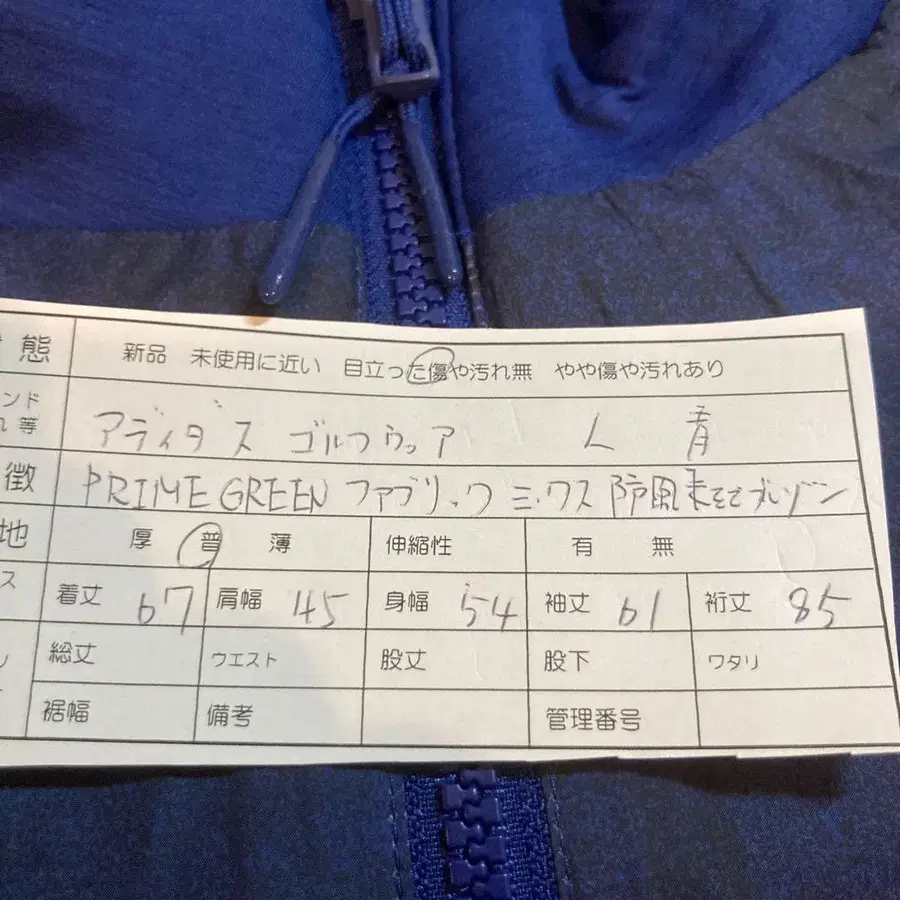 態 新品 未使用に近い 目立った傷や汚れ無 やや傷や汚れあり
ンド
等 アディダス ゴルフウェア L 青
徴 PRIME GREEN ファブリックミックス 防風長そでブルゾン
地 厚 普 薄 伸縮性 有 無
ス 着丈 67 肩幅 45 身幅 54 袖丈 61 裄丈 85
総丈 ウエスト 股丈 股下 ワタリ
裾幅 備考 管理番号